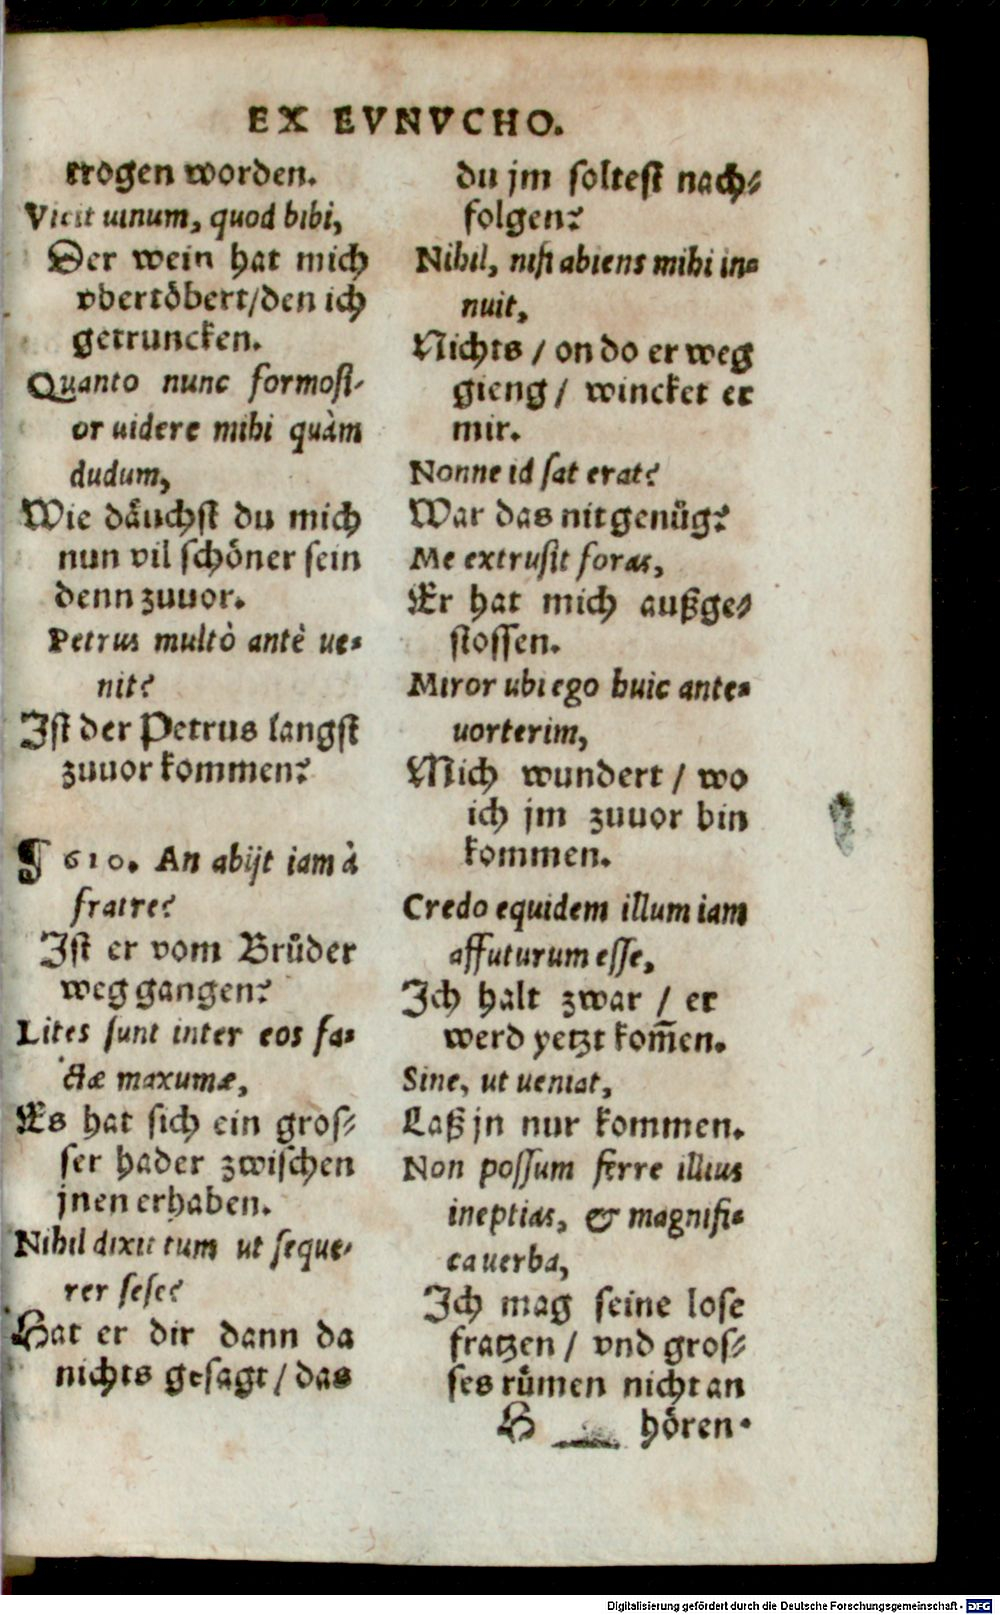 EX EVNVCHO.
trogen worden.
Vicit uinum, quod bibi,
Der wein hat mich
vbertöbert/den ich
getruncken.
Quanto nunc formosi-
or uidere mihi quàm
dudum,
Wie däuchst du mich
nun vil schöner sein
denn zuuor.
Petrus multò antè ue-
nit?
Ist der Petrus langst
zuuor kommen?
¶ 610. An abijt iam à
fratre?
Ist er vom Brůder
weg gangen?
Lites sunt inter eos fa-
ctæ maxumæ,
Es hat sich ein gros-
ser hader zwischen
jnen erhaben.
Nihil dixit tum ut seque-
rer sese?
Hat er dir dann da
nichts gesagt/das
du jm soltest nach-
folgen?
Nihil, nisi abiens mihi in-
nuit,
Nichts / on do er weg
gieng / wincket er
mir.
Nonne id sat erat?
War das nit genůg?
Me extrusit foras,
Er hat mich außge-
stossen.
Miror ubi ego huic ante-
uorterim,
Mich wundert / wo
ich jm zuuor bin
kommen.
Credo equidem illum iam
affuturum esse,
Ich halt zwar / er
werd yetzt kom̃en.
Sine, ut ueniat,
Laß jn nur kommen.
Non possum ferre illius
ineptias, & magnifi-
ca uerba,
Ich mag seine lose
fratzen / vnd gros-
ses růmen nicht an
H hören.
Digitalisierung gefördert durch die Deutsche Forschungsgemeinschaft - DFG